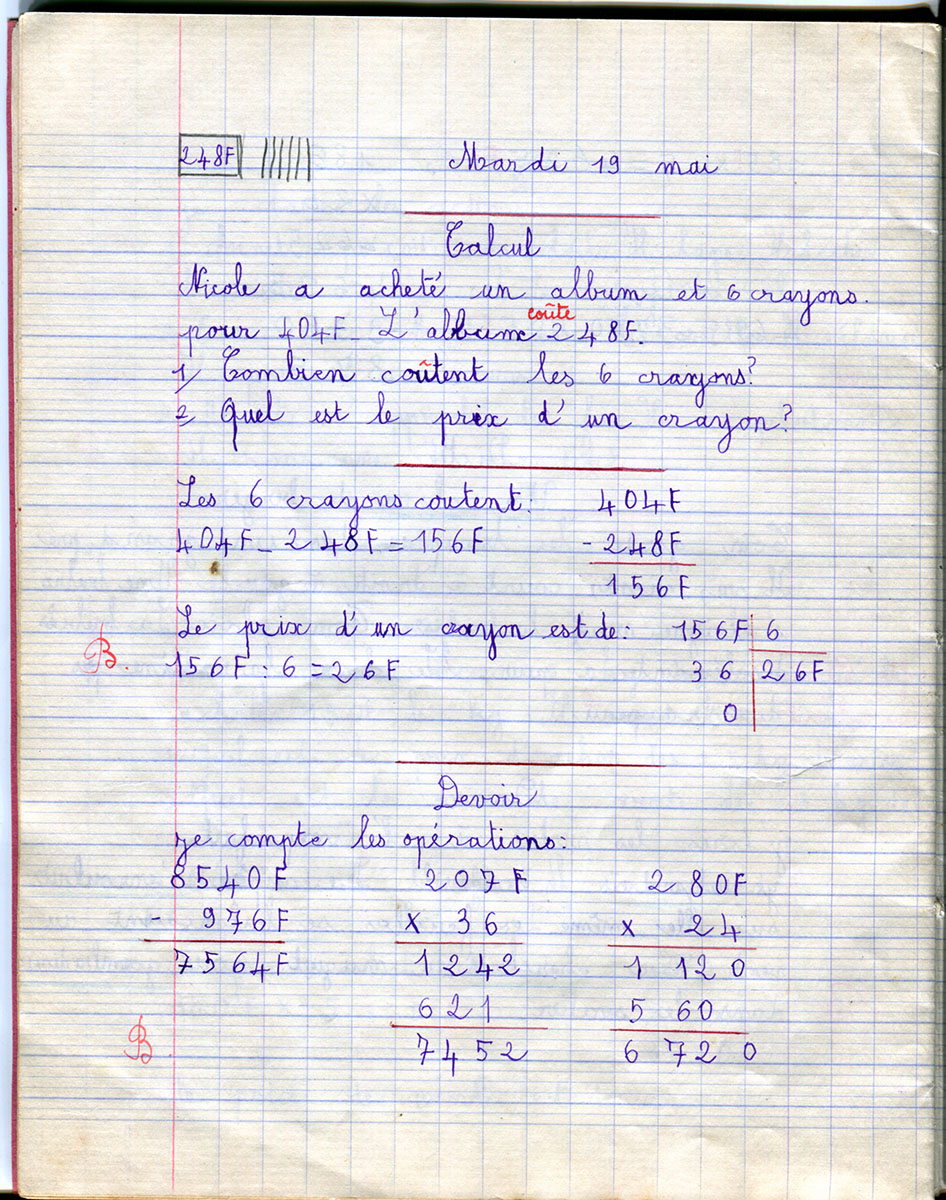 248F Mardi 19 mai
Calcul
Nicole a acheté un album et 6 crayons.
pour 404F_ L'album coûte 248F.
1/ Combien coûtent les 6 crayons?
2 Quel est le prix d'un crayon?
Les 6 crayons coutent: 404F
404F_248F=156F -248F
156F
Le prix d'un crayon est de: 156F 6
B. 156F:6=26F 36 26F
0
Devoir
je compte les opérations:
8540F 207F 280F
- 976F x 36 x 24
7564F 1242 1 120
621 5 60
B. 7452 6 720